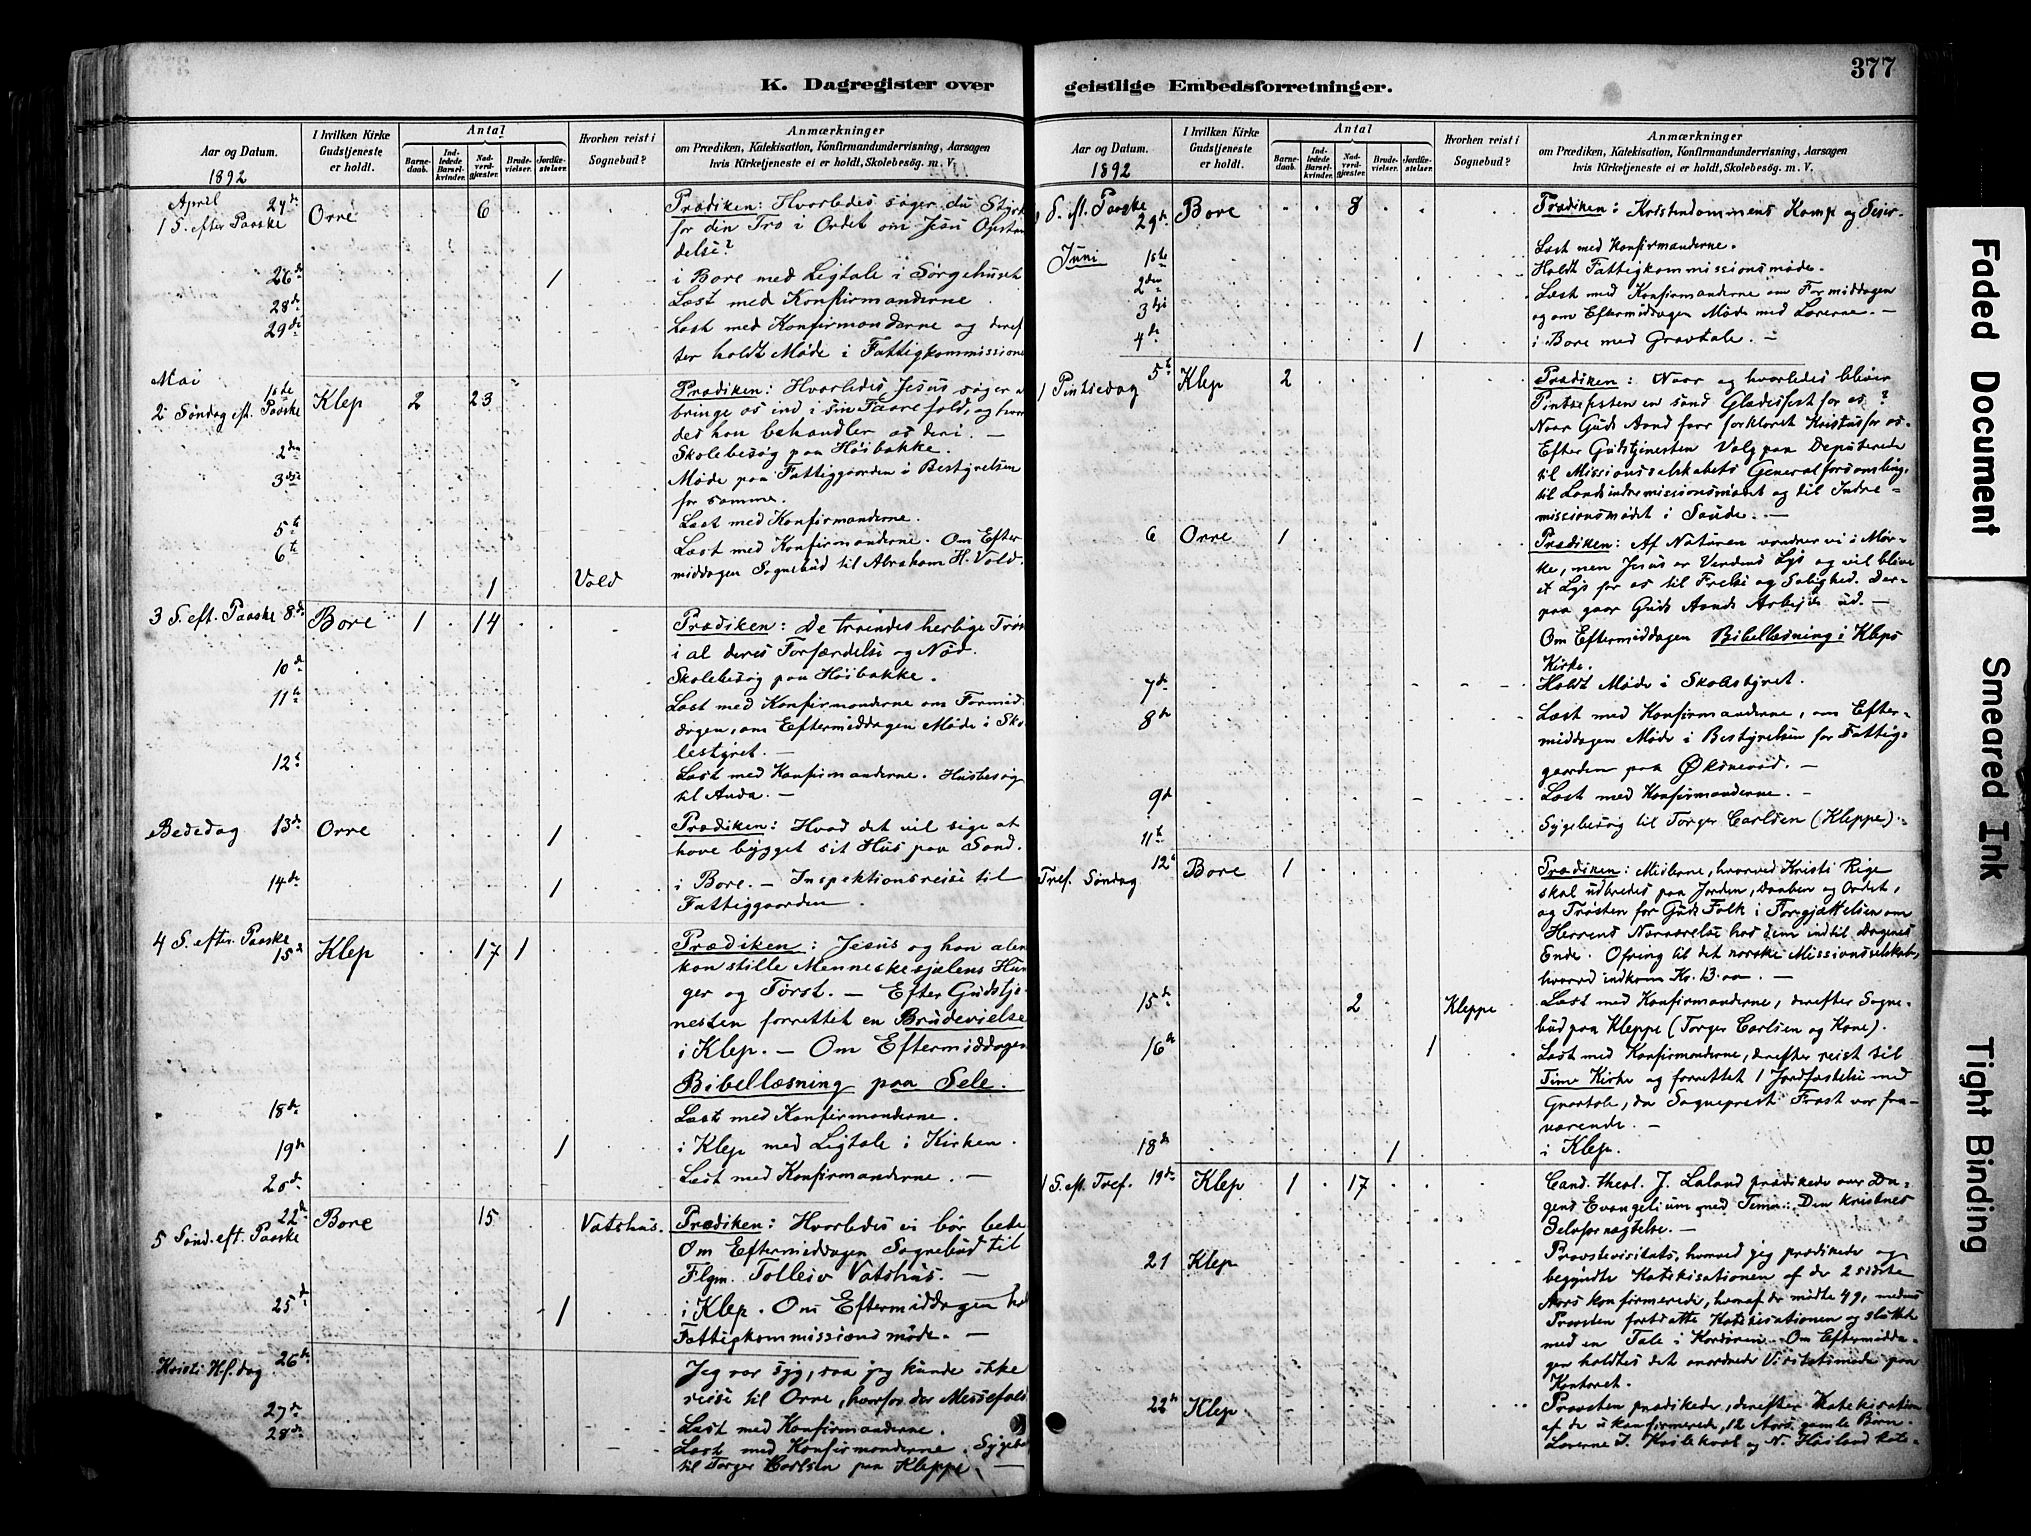 377
K. Dagregister over
geistlige Embedsforretninger.
Aar og Datum.
1892
I hvilken Kirke Gudstjeneste er holdt.
Antal
Barnedaab.
Indledede Barselkvinder.
Nadverdgjæster.
Brudevielser.
Jordfæstelser.
Hvorhen reist i Sognebud?
Anmærkninger
om Prædiken, Katekisation, Konfirmandundervisning, Aarsagen
hvis Kirketjeneste ei er holdt, Skolebesøg. m. V.
April 24de Orre 6 Prædiken: Hvorledes søger du Styrke
1 S. efter Paaske for din Tro i Ordet om Jesu Opstan
delse?
26de 1 i Bore med Ligtale i Sørgehuset
28de Læst med Konfirmanderne
29de Læst med Konfirmanderne og deref
ter holdt Møde i Fattigkommissione
Mai
1ste Klep 2 23 Prædiken: Hvorledes Jesus søger a
2 Søndag eft. Paaske bringe os ind i sin Faarefold, og hvor
des han behandler os deri. —
2den Skolebesøg paa Høibakke.
3die Møde paa Fattiggaarden i Bestyrelsen
for samme.
5te Læst med Konfirmanderne.
6te Læst med Konfirmanderne. Om Efter
1 Vold middagen Sognebud til Abraham H. Vold.
3 S. eft. Paaske 8de Bore 1 14 Prædiken: De troendes herlige Trøs
i al deres Forfærdelse og Nød.
10de Skolebesøg paa Høibakke.
11te Læst med Konfirmanderne om Formid
dagen, om Eftermiddagen Møde i Sko
lestyret. —
12te Læst med Konfirmanderne. Husbesøg
til Anda. —
Bededag 13de Orre 1 Prædiken: Hvad det vil sige at
have bygget sit Hus paa Sand.
14de 1 i Bore. — Inspektionsreise til
Fattiggaarden.
4 S. efter Paaske
15de Klep 17 1 Prædiken: Jesus og han alen
kan stille Menneskesjælens Hun
ger og Tørst. — Efter Gudstje
nesten forrettet en Brudevielse
i Klep. — Om Eftermiddagen
Bibellæsning paa Sele.
18de Læst med Konfirmanderne.
19de 1 i Klep med Ligtale i Kirken.
20de Læst med Konfirmanderne. —
22de Bore 15 Vatshus. Prædiken: Hvorledes vi bør bede
5 Sønd. eft. Paaske Om Eftermiddagen Sognebud til
Flgm. Tolleiv Vatshus. —
25de 1 i Klep. Om Eftermiddagen hol
Fattigkommissionsmøde. —
Kristi Hf. dag 26de Jeg var syg, saa jeg kunde ikke
reise til Orre, hvorfor der Messefald.
27de Læst med Konfirmanderne.
28de Læst med Konfirmanderne. Sygebe
til Torger Carlsen paa Kleppe. —
Aar og Datum.
1892
I hvilken Kirke Gudstjeneste er holdt.
Antal
Barnedaab.
Indledede Barselkvinder.
Nadverdgjæster.
Brudevielser.
Jordfæstelser.
Hvorhen reist i Sognebud?
Anmærkninger
om Prædiken, Katekisation, Konfirmandundervisning, Aarsagen
hvis Kirketjeneste ei er holdt, Skolebesøg. m. V.
S. eft. Paaske 29de Bore 8 Prædiken: Kristendommens Kamp og Seier.
Læst med Konfirmanderne.
Juni 1ste Holdt Fattigkommissionsmøde.
2den Læst med Konfirmanderne om Formiddagen
3die og om Eftermiddagen Møde med Lærerne. —
4de 1 i Bore med Gravtale. —
1 Pintsedag 5te Klep 2 Prædiken: Naar og hvorledes bliver
Pintsefesten en sand Glædesfest for os?
Naar Guds Aand faar forklaret Kristus for os.
Efter Gudstjenesten Valg paa Deputerede
til Missionsselskabets Generalforsamling,
til Landsindremissionsmødet og til Indre-
missionsmødet i Saude. —
6 Orre 1 Prædiken: Af Naturen vandrer vi i Mør-
ke, men Jesus er Verdens Lys og vil blive
et Lys for os til Frelse og Salighed. Der-
paa gaar Guds Aands Arbejde ud. —
Om Eftermiddagen Bibellæsning i Kleps
Kirke.
7de Holdt Møde i Skolestyret.
8de Læst med Konfirmanderne, om Efter-
middagen Møde i Bestyrelsen for Fattig-
gaarden paa Øksnevad. —
9de Læst med Konfirmanderne. —
11te Sygebesøg til Torger Carlsen (Kleppe).
Tref. Søndag 12te Bore 1 Prædiken: Midlerne, hvorved Kristi Rige
skal udbredes paa Jorden, Daaben og Ordet,
og Trøsten for Guds Folk i Forgjættelsen om
Herrens Nærværelse hos dem indtil Dagenes
Ende. Ofring til det norske Missionsselskab,
hvorved indkom Kr. 13.00. —
15de 2 Kleppe Læst med Konfirmanderne, derefter Sogne-
bud paa Kleppe (Torger Carlsen og Kone).
16de 1 Læst med Konfirmanderne, derefter reist til
Time Kirke og forrettet 1 Jordfæstelse med
Gravtale, da Sogneprest Frost var fra-
værende. —
18de 1 i Klep.
1 S. eft. Tref. 19de Klep 1 17 Cand. theol. J. Laland prædikede over Da-
gens Evangelium med Tema: Den kristnes
Selvfornægtelse. —
21 Klep Provstevisitats, hvorved jeg prædikede og
begyndte Katekisationen af de 2 sidste
Aars konfirmerede, hvoraf der mødte 49, medens
Provsten fortsatte Katekisationen og sluttet
med en Tale i Kordøren. Om Eftermidda-
gen holdtes det anordnede Visitatsmøde paa
Kontoret.
22de Klep. Provsten prædikede, derefter Katekisation
af de ukonfirmerede, 12 Aars gamle Børn.
Lærerne J. Kvilekval og N. Høiland kate-
Faded Document
Smeared Ink
Tight Binding